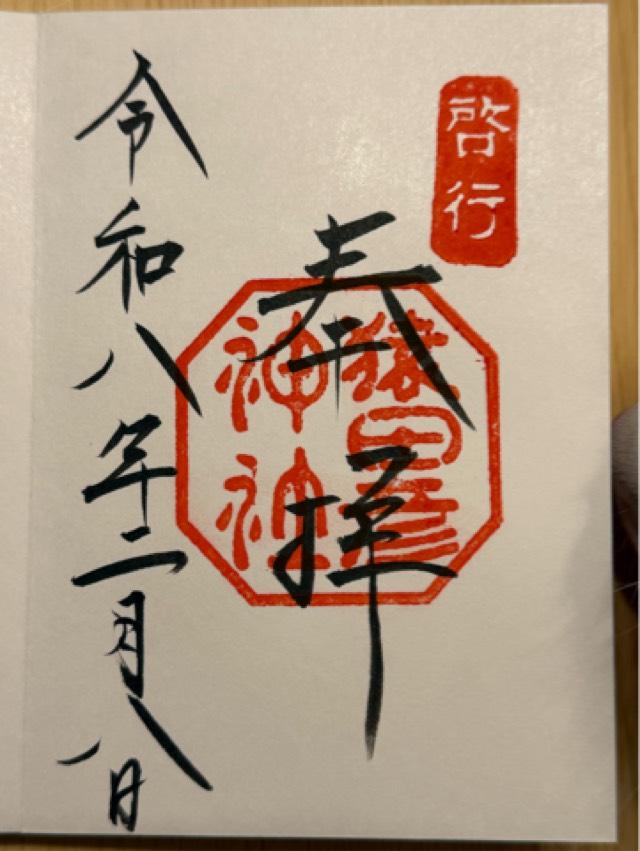 啓行
奉拝
猿田彦
神社
令和八年二月八日